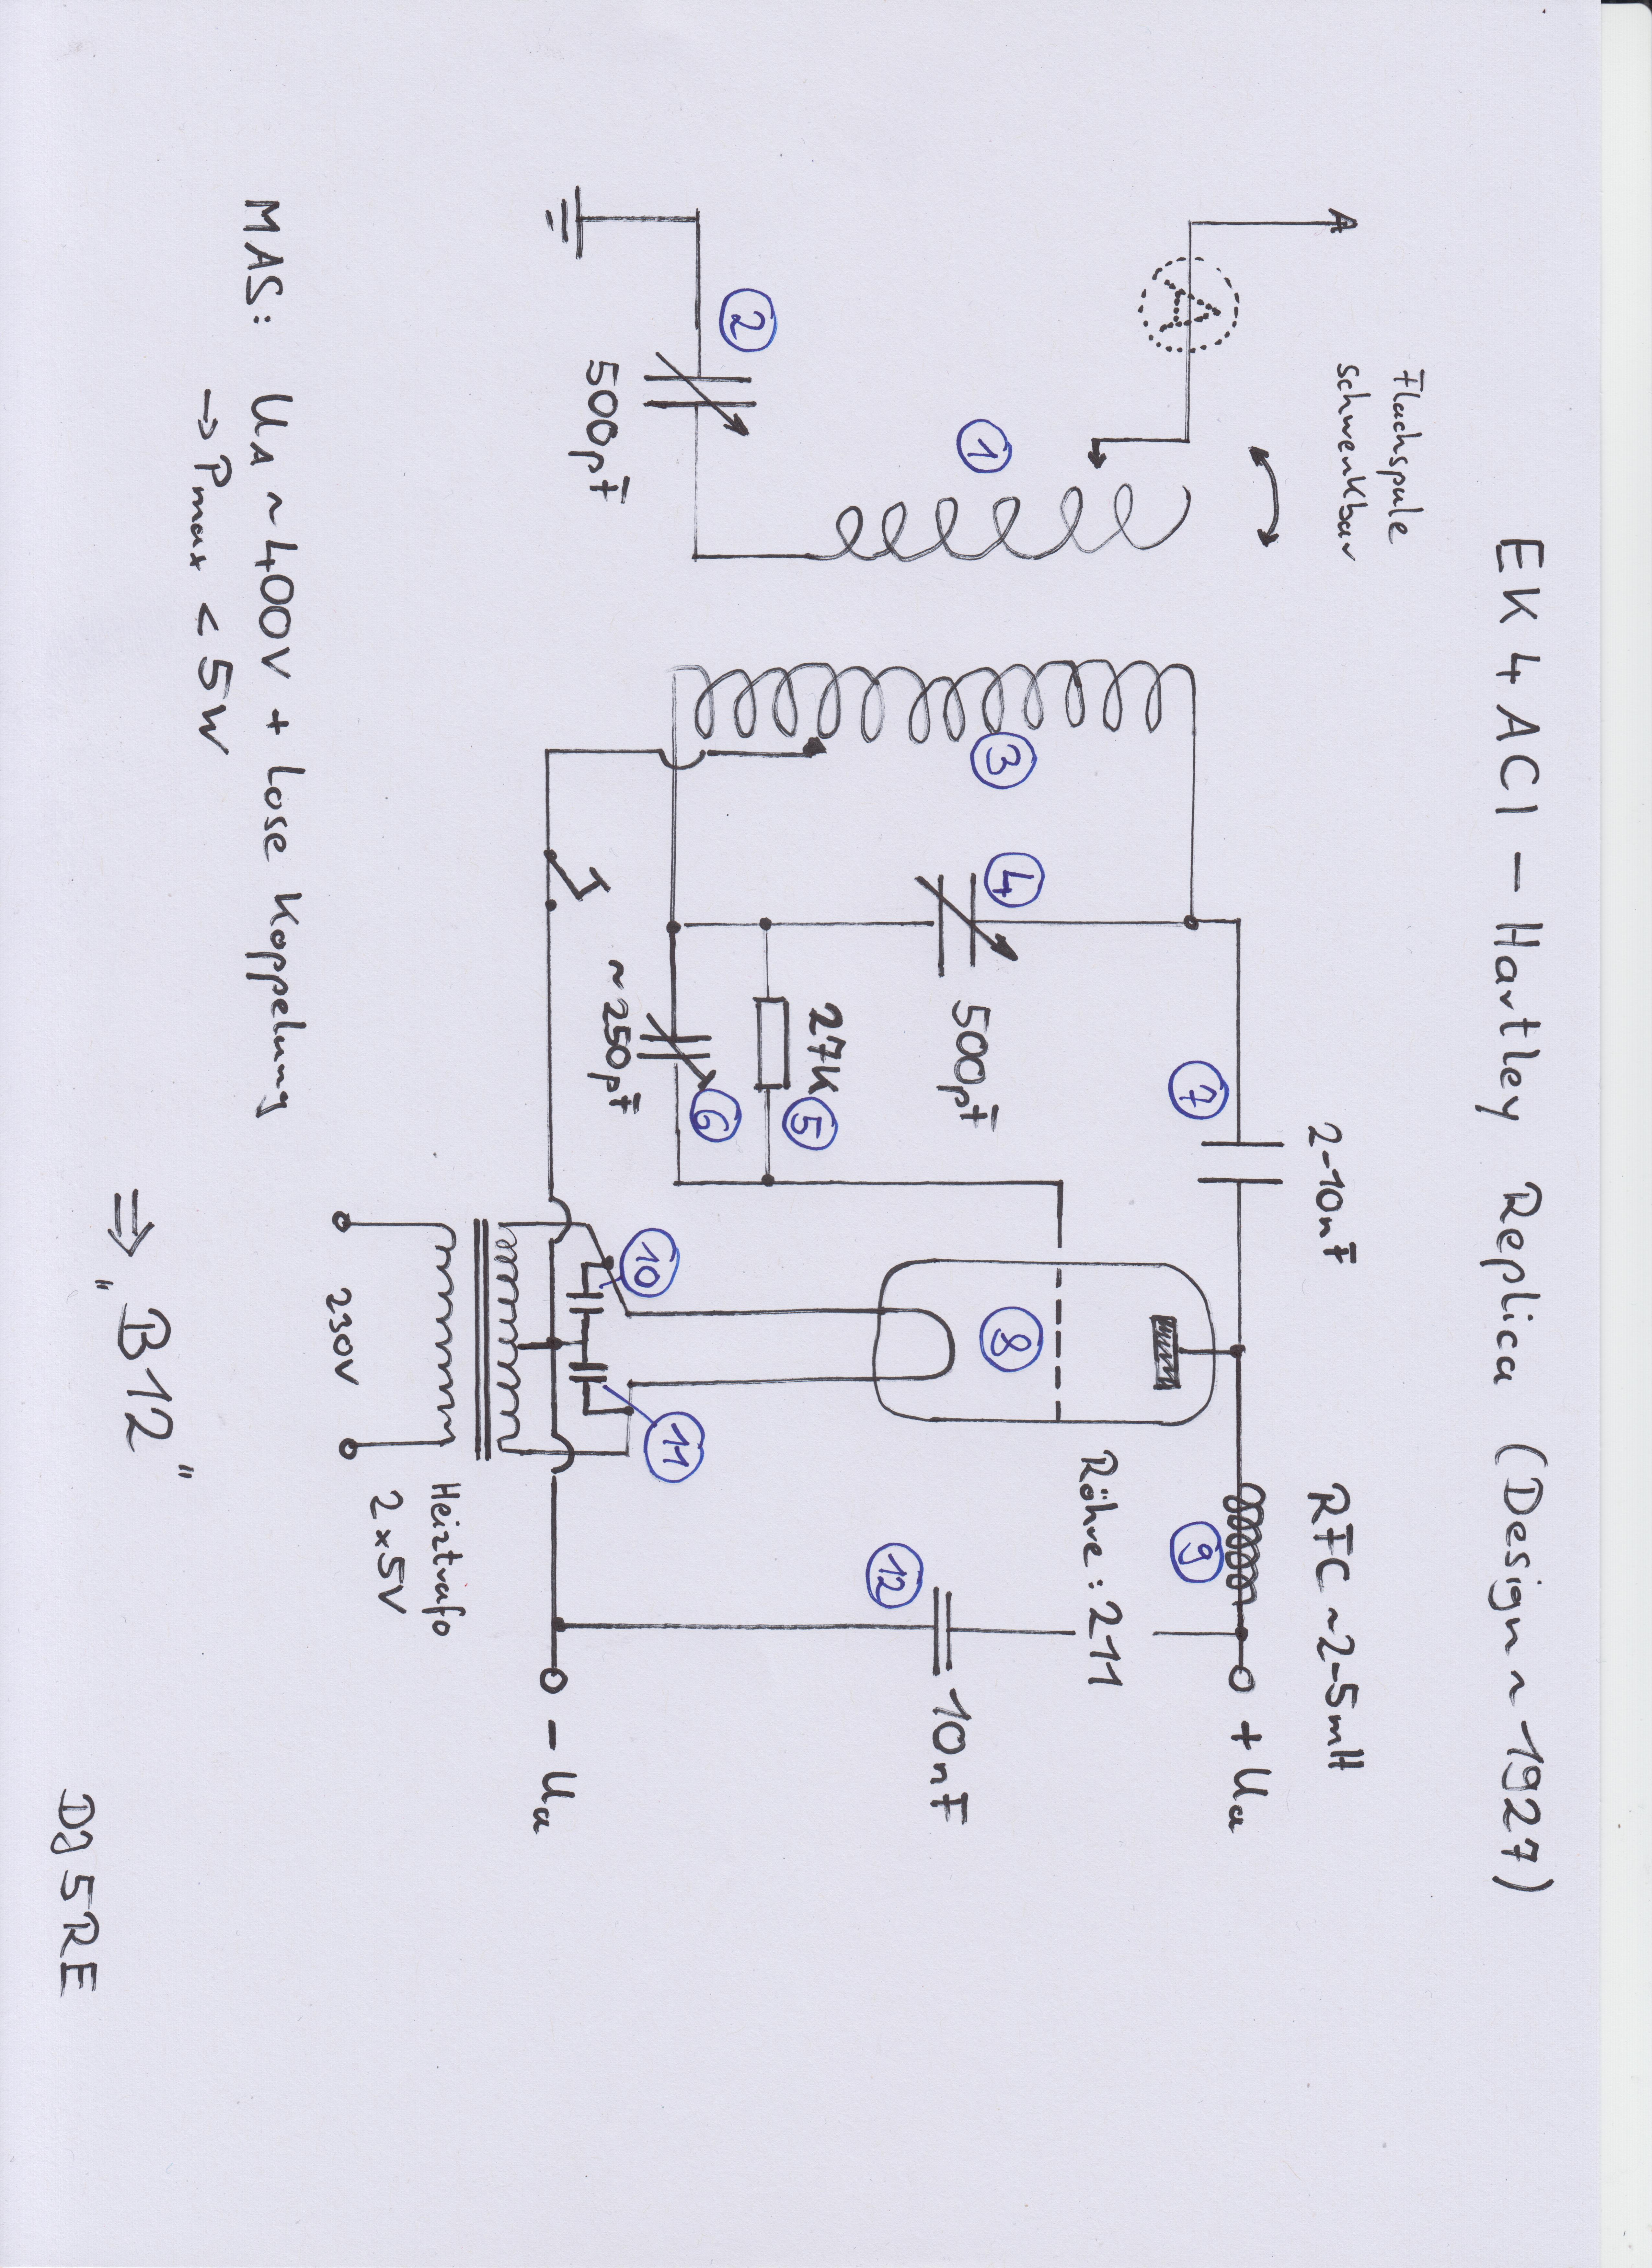 EK4ACI – Hartley Replica (Design ~ 1927)
Flachspule
schwenkbar
A
1
2
500pF
3
4
500pF
27K
5
~250pF
6
7
2-10nF
8
Röhre: 211
RFC ~2-5mH
9
+Ua
10
11
12
10nF
-Ua
230V
Heiztrafo
2x5V
MAS: UA ~ 400V + lose Koppelung
→ Pmax < 5W
⇒ „B12"
DJ5RE